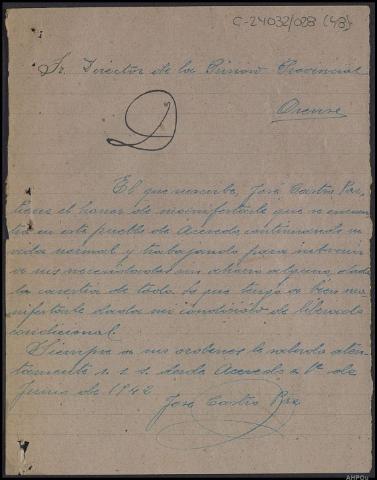 C-24032/028 (43)
Sr. Director de la Prision Provincial
Orense
El que suscribe, José Castro
tiene el honor de manifestarle que se encuen
tra en este pueblo de Acevedo continuando su
vida normal y trabajando para
a sus necesidades sin ahorro alguno, dada
la carestia de todo. Lo que tengo a bien ma
nifestarle dada mi condición de liberado
condicional.
Siempre a sus ordenes le saluda aten
tamente s. s. s. desde Acevedo a 1º de
Junio de 1942
José Castro
AHPOu